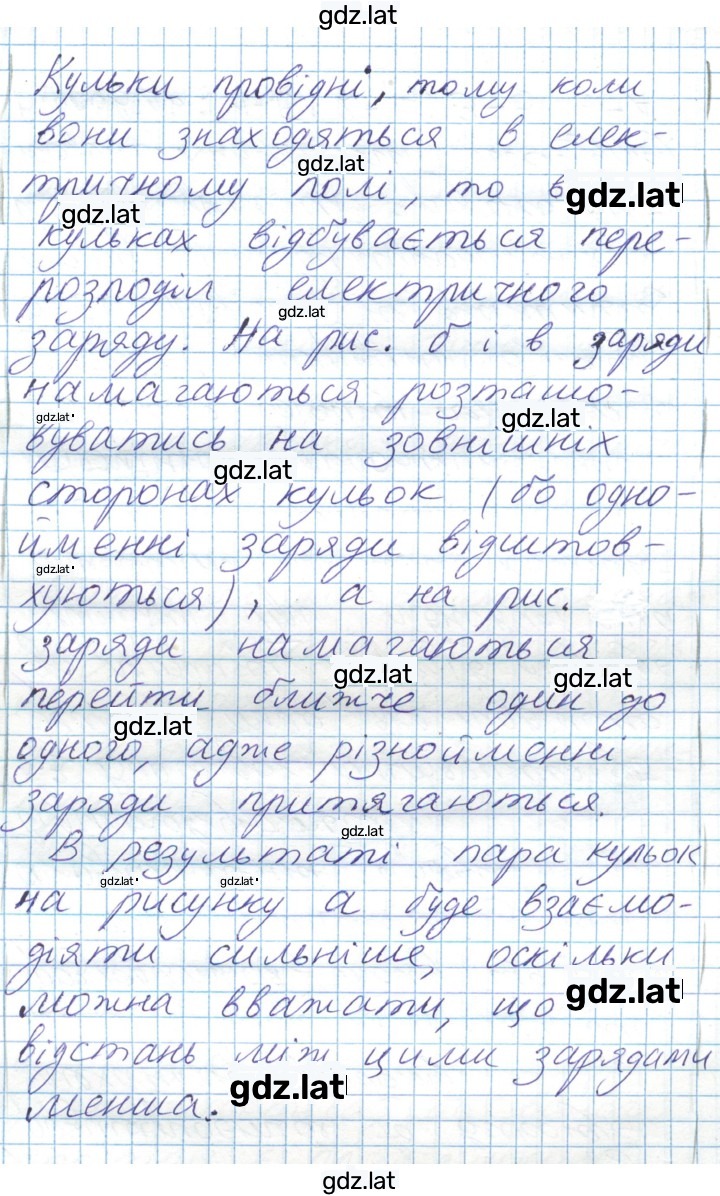 gdz.lat
Кульки провідні, тому коли
вони знаходяться в елек-
gdz.lat
тричному полі, то в
gdz.lat
gdz.lat
кульках відбувається пере-
розподіл електричного
gdz.lat
заряду. На рис. б і в заряди
намагаються розташо-
gdz.lat
gdz.lat
вуватись на зовнішніх
gdz.lat
сторонах кульок (бо одно-
йменні заряди відштов-
gdz.lat
хуються), а на рис.
заряди намагаються
gdz.lat
gdz.lat
перейти ближче один до
gdz.lat
одного, адже різнойменні
заряди притягаються.
gdz.lat
В результаті пара кульок
gdz.lat
gdz.lat
на рисунку а буде взаємо-
діяти сильніше, оскільки
можна вважати, що
gdz.lat
відстань між цими зарядами
gdz.lat
менша.
gdz.lat